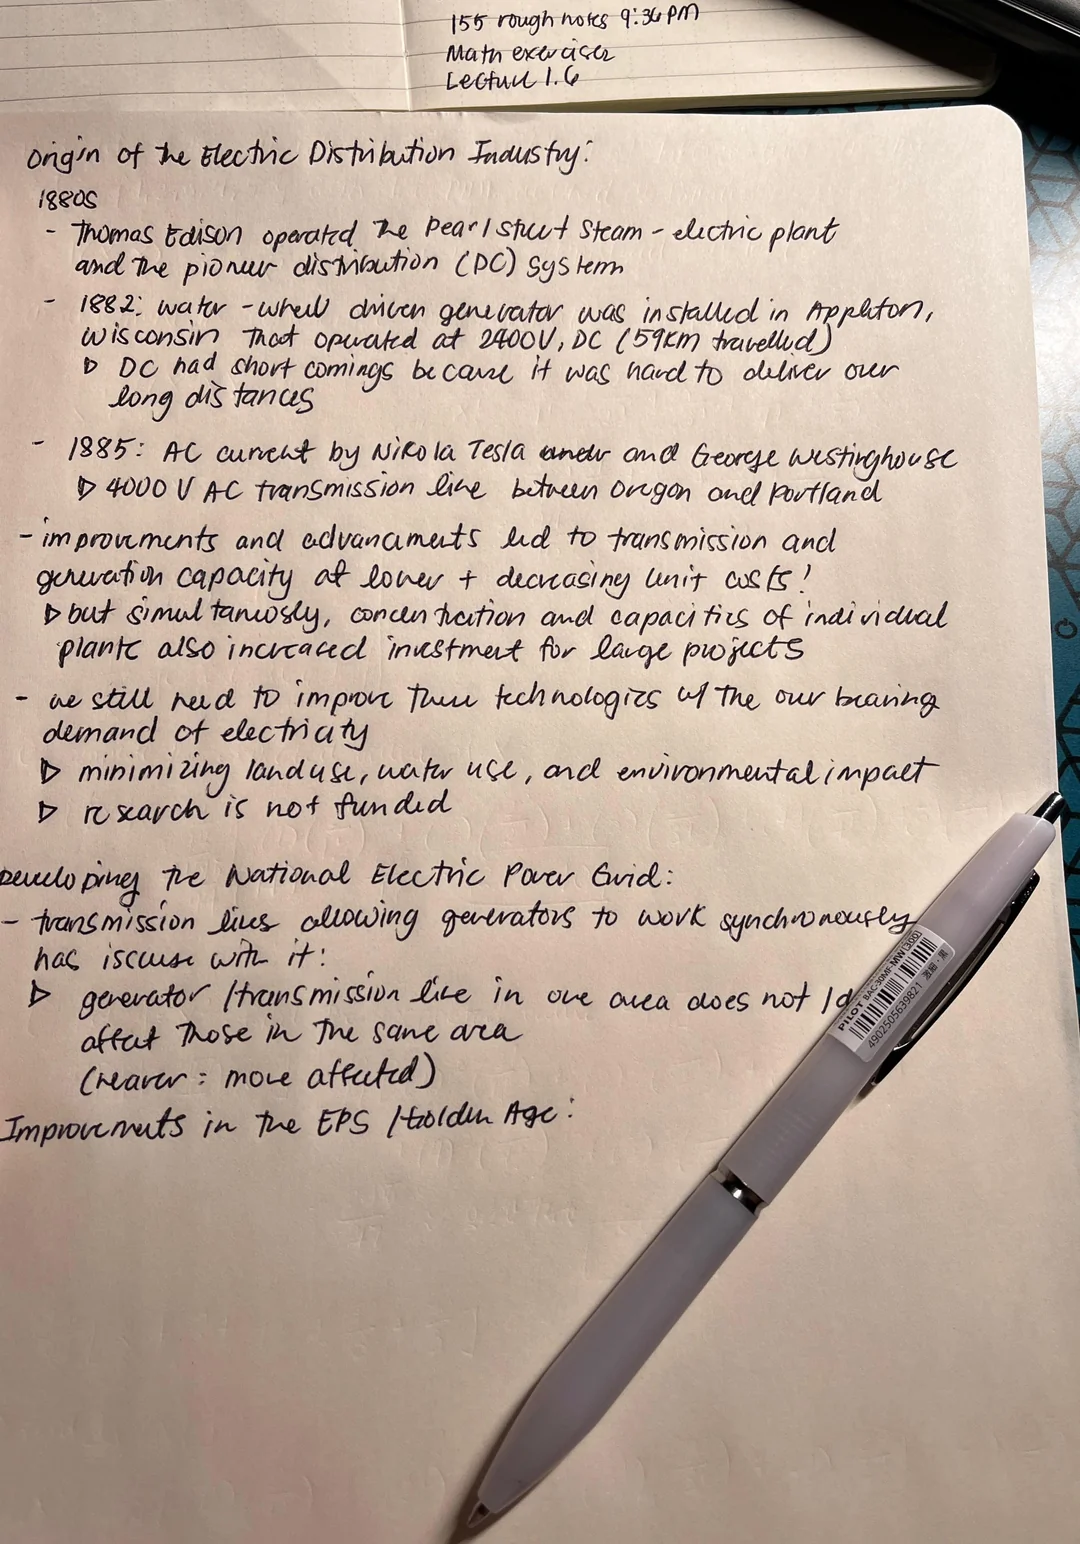 155 rough notes 9:36 PM
Math exercises
Lecture 1.6
Origin of the Electric Distribution Industry:
1880s
- Thomas Edison operated the Pearl street Steam-electric plant
and the pioneer distribution (DC) system
- 1882: water-wheel driven generator was installed in Appleton,
Wisconsin that operated at 2400V, DC (59km travelled)
▷ DC had short comings because it was hard to deliver over
long distances
- 1885: AC current by Nikola Tesla and George Westinghouse
▷ 4000 V AC transmission line between Oregon and Portland
- improvements and advancements led to transmission and
generation capacity at lower + decreasing unit costs!
▷ but simultaneously, concentration and capacities of individual
plants also increased investment for large projects
- we still need to improve these technologies w/ the our bearing
demand of electricity
▷ minimizing land use, water use, and environmental impact
▷ research is not funded
Developing the National Electric Power Grid:
- transmission lines allowing generators to work synchronously
has issuse with it:
▷ generator/transmission line in one area does not /d
affect those in the same area
(nearer = more affected)
Improvements in the EPS /Golden Age:
PILOT BAC-30MF-MW(300)
4902505639821 激細・黒